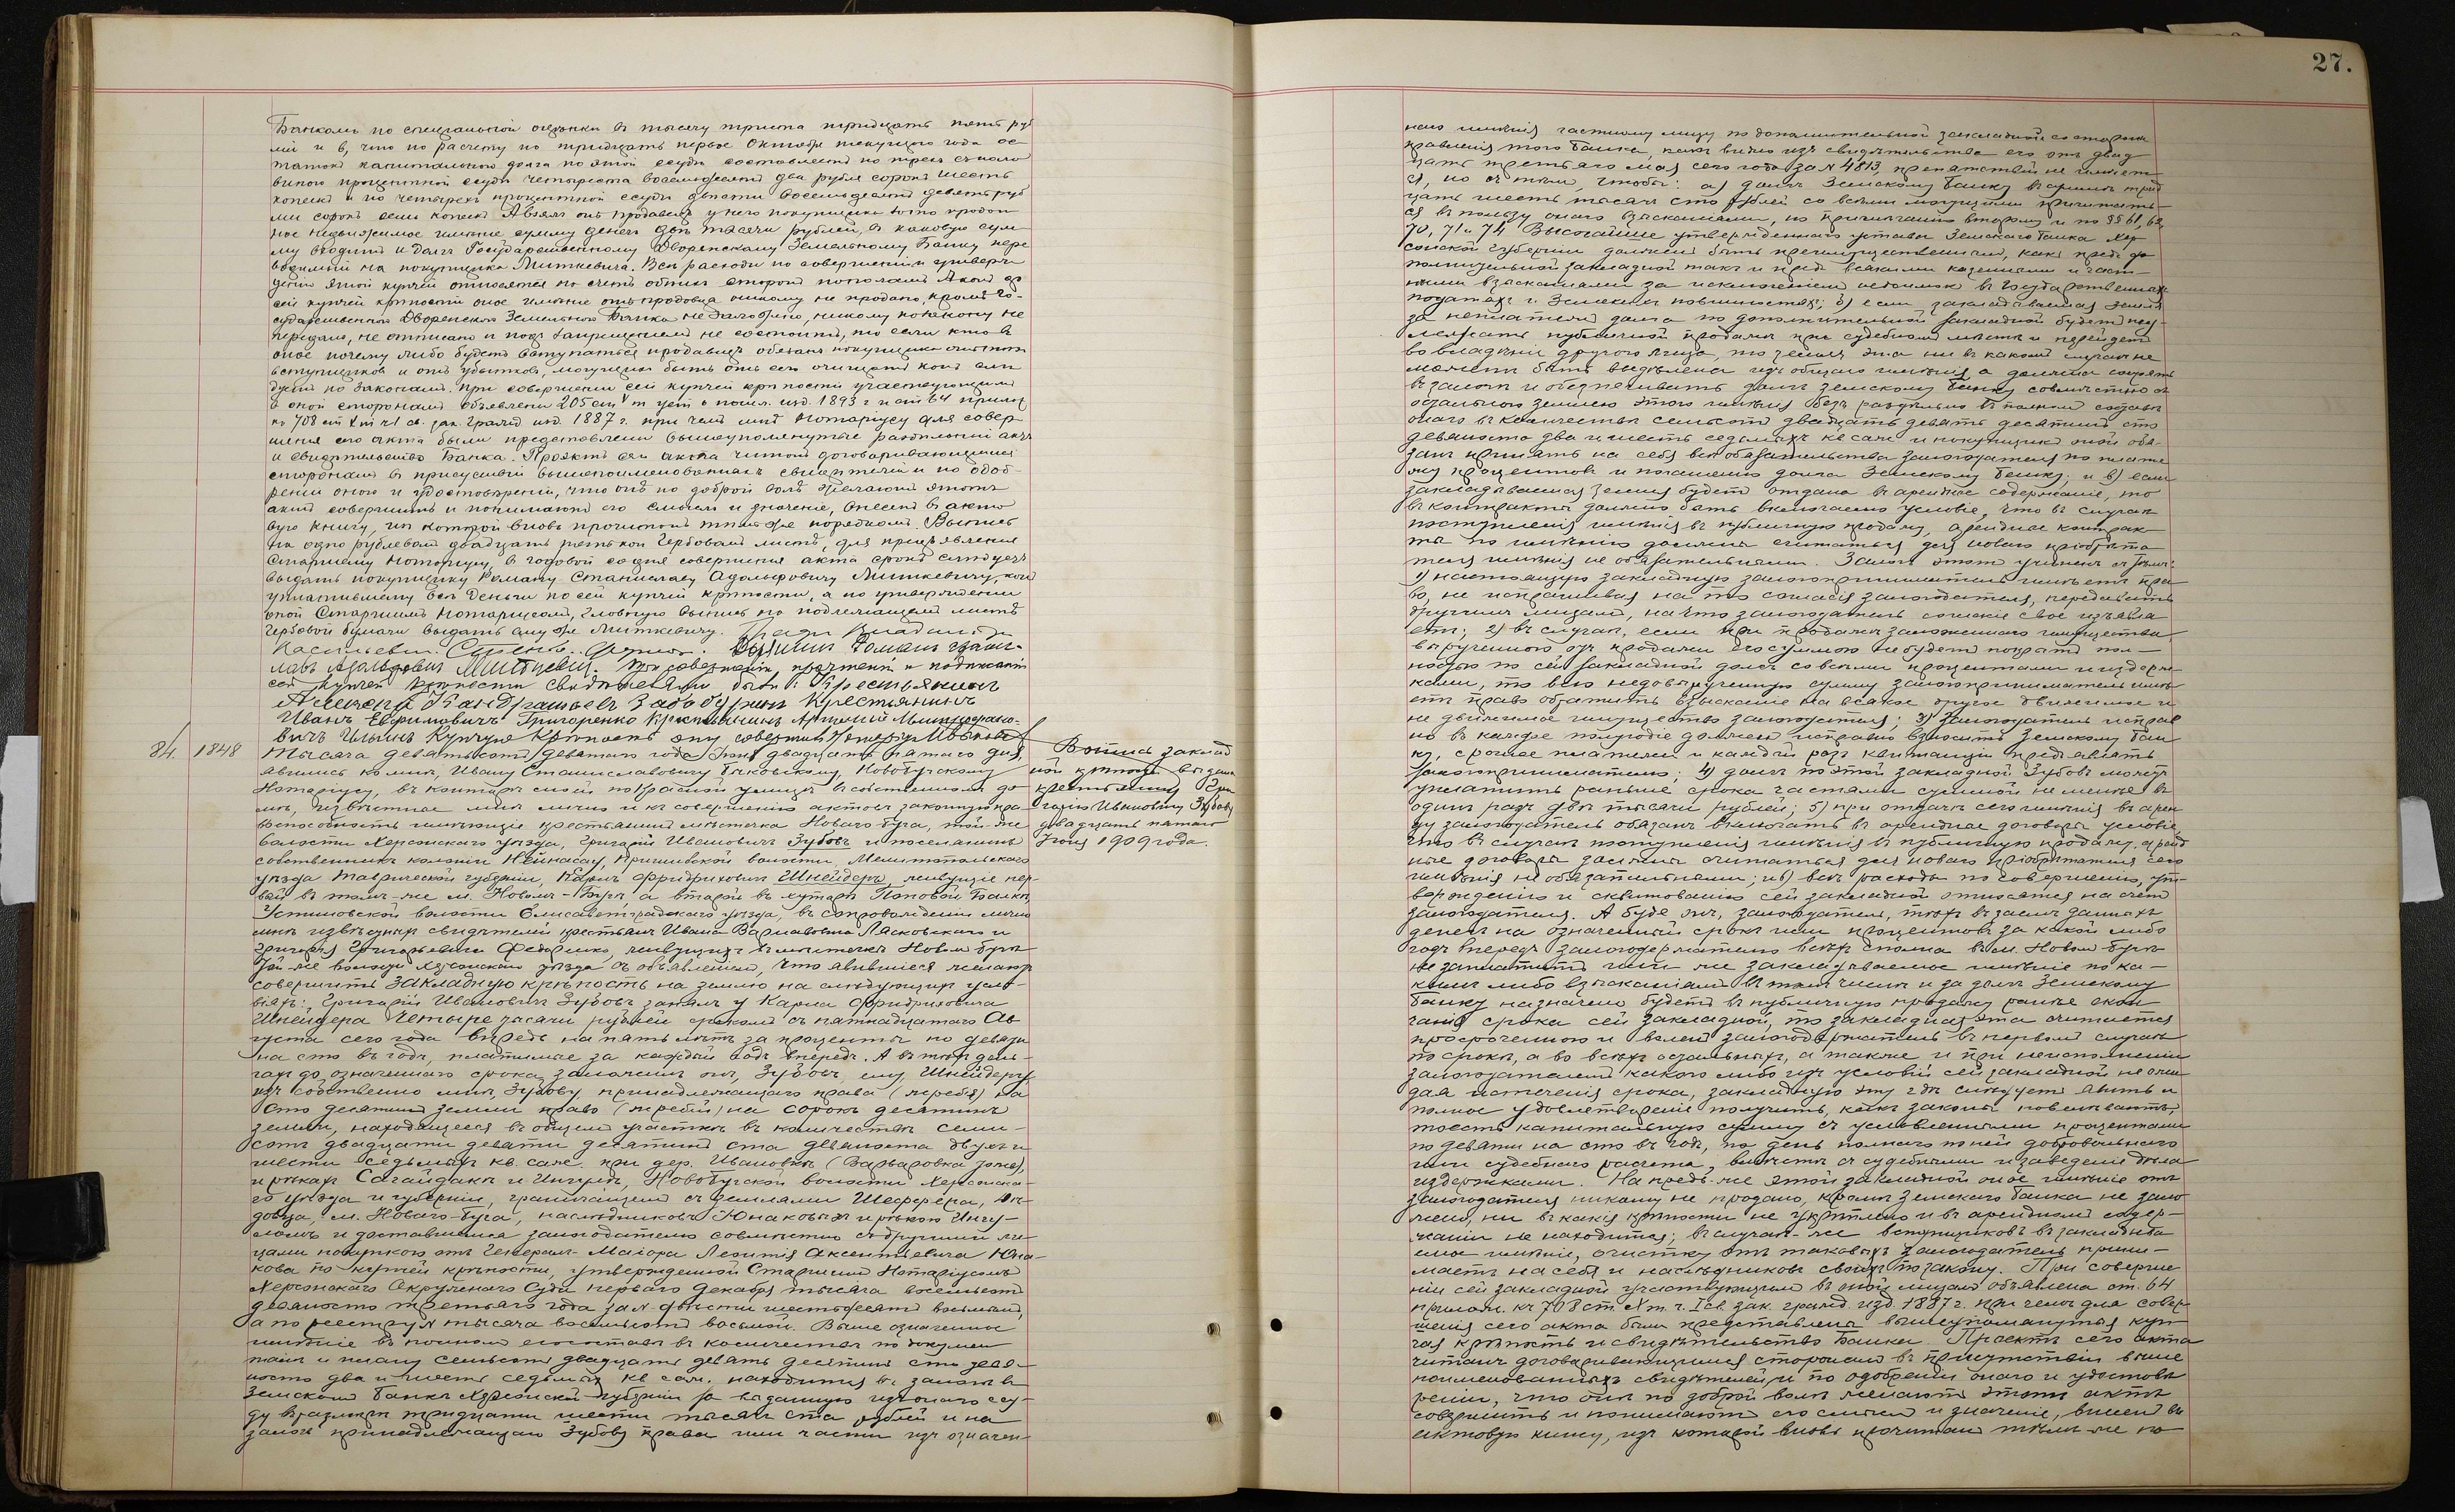 Банкомъ по спеціальной оцѣнкѣ въ тысячу триста тридцать пять руб
лей и в, что по расчету по тридцать первое Октября текущаго года ос
татокъ капитальнаго долга по этой ссудѣ составляетъ по трехъ съ поло
виною процентной ссудѣ четыреста восемьдесятъ два рубля сорокъ шесть
копѣекъ и по четырехъ процентной ссудѣ двѣсти восемьдесятъ девять руб
лей сорокъ семь копѣекъ А взялъ онъ продавецъ у него покупщика за то продан
ное недвижимое имѣніе сумму денегъ двѣ тысячи рублей, въ каковую сум
му входитъ и долгъ Государственному Дворянскому Земельному Банку пере
водимый на покупщика Миткевича. Всѣ расходы по совершенію и утверж
денію этой купчей относятся на счетъ обѣихъ сторонъ пополамъ А до
сей купчей крѣпости оное имѣніе отъ продавца никому не продано, кромѣ Го-
сударственнаго Дворянскаго Земельнаго Банка не заложено, никому ни по чему не
передано, не отписано и подъ запрещеніемъ не состоитъ, но если кто въ
оное почему либо будетъ вступаться продавецъ обязанъ покупщика очистить
вступщиковъ и отъ убытковъ, могущихъ быть отъ его очищать какъ слѣ
дуетъ по законамъ. При совершеніи сей купчей крѣпости участвующимъ
въ оной сторонамъ объявлены 205 ст V т уст о пошл. изд. 1893 г и ст 64 прилож
къ 708 ст X т ч 1 св. зак. гражд изд. 1887 г. при чемъ мнѣ Нотаріусу для совер
шенія сего акта были представлены вышеупомянутые раздѣльный актъ
и свидѣтельство Банка. Проектъ сего акта читанъ договаривающимся
сторонамъ въ присутствіи вышепоименованныхъ свидѣтелей и по одоб-
реніи онаго и удостовѣреніи, что они по доброй волѣ желаютъ этотъ
актъ совершить и понимаютъ его смыслъ и значеніе, внесенъ въ акто
вую книгу, изъ которой вновь прочитанъ тѣмъ же порядкомъ. Выпись
на одно рублевомъ двадцать пять коп гербовомъ листѣ, для предъявленія
Старшему Нотаріусу, въ годовой со дня совершенія акта срокъ слѣдуетъ
выдать покупщику Роману Станиславу Адольфовичу Миткевичу,
уплатившему всѣ деньги по сей купчей крѣпости, а по утвержденіи
оной Старшимъ Нотаріусомъ, главную выпись на подлежащемъ листѣ
гербовой бумаги выдать ему же Миткевичу.
Дворянинъ Романъ Стани-
славъ Адольфовичъ Миткевичъ. При совершеніи, прочтеніи и подписаніи
сей купчей крѣпости свидѣтелями были: Крестьянинъ
Крестьянинъ
Иванъ Ефимовичъ Григоренко Крестьянинъ Артемій Митрофано-
вичъ Ильинъ Купчую крѣпость эту совершилъ Нотаріусъ
84. 1848 Тысяча девятьсотъ девятаго года Іюня двадцать пятаго дня,
явились ко мнѣ, Ивану Станиславовичу Быковскому, Новобугскому
Нотаріусу, въ контору мою по Красной улицѣ въ собственномъ до
мѣ, извѣстные мнѣ лично и къ совершенію актовъ законную пра-
воспособность имѣющіе крестьянинъ мѣстечка Новаго-Буга, той-же
волости Херсонскаго уѣзда, Григорій Ивановичъ Зубовъ и поселянинъ
собственникъ колоніи Нейнасау, Пришибской волости, Мелитопольскаго
уѣзда Таврической губерніи, Карлъ Фридриховичъ Шнейдеръ, живущіе пер-
вый въ томъ-же м. Новомъ-Бугѣ, а второй въ хуторѣ Поповой Балкѣ,
Устиновской волости Елисаветградскаго уѣзда, въ сопровожденіи лично
мнѣ извѣстныхъ свидѣтелей крестьянъ Ивана Варлаамовича Ласковскаго и
Григорія Григорьевича Федоренко, живущихъ въ мѣстечкѣ Новомъ Бугѣ
той-же волости Херсонскаго уѣзда съ объявленіемъ, что явившіеся желаютъ
совершить закладную крѣпость на землю на слѣдующихъ усло-
віяхъ: Григорій Ивановичъ Зубовъ занялъ у Карла Фридриховича
Шнейдера четыре тысячи рублей срокомъ съ пятнадцатаго Ав
густа сего года впредь на пять лѣтъ за проценты по девяти
на сто въ годъ, платимые за каждый годъ впередъ. А въ тѣхъ день-
гахъ до означеннаго срока заложилъ онъ, Зубовъ, ему, Шнейдеру,
изъ собственно мнѣ, Зубову, принадлежащаго права (жеребья) на
сто десятинъ земли право (жеребій) на сорокъ десятинъ
земли, находящееся въ общемъ участкѣ въ количествѣ семи-
сотъ двадцати девяти десятинъ ста девяноста двухъ и
шести седьмыхъ кв. саж. при дер. Ивановкѣ (Варваровка тожъ),
и рѣкахъ Сагайдакѣ и Ингулѣ, Новобугской волости Херсонска-
го уѣзда и губерніи, граничащемъ съ землями Шефера,
м. Новаго-Буга, наслѣдниковъ Юнаковыхъ и рѣкою Ингу-
ломъ и доставшемся залогодателю совмѣстно съ другими ли-
цами покупкою отъ Генералъ-Маіора Леонтія Аксентіевича Юна-
кова по купчей крѣпости, утвержденной Старшимъ Нотаріусомъ
Херсонскаго Окружнаго Суда перваго декабря тысяча восемьсотъ
девяносто третьяго года за N-двѣсти шестьдесятъ восьмымъ,
а по реестру N тысяча восемьсотъ восьмой. Выше означенное
имѣніе въ полномъ его составѣ въ количествѣ по докумен
тамъ и плану семьсотъ двадцать девять десятинъ сто девя-
носто два и шесть седьмыхъ кв. саж. находится въ залогѣ въ
Земскомъ Банкѣ Херсонской губерніи за выданную изъ онаго ссу-
ду въ размѣрѣ тридцати шести тысячъ ста рублей и на
залогъ принадлежащаго Зубову права или части изъ означен-
Выпись заклад
ной крѣпости выдана
крестьянину Гри
горію Ивановичу Зубову
двадцать пятаго
Іюня 1909 года.
27.
наго имѣнія частному лицу по дополнительной закладной со стороны
правленія того Банка, какъ видно изъ свидѣтельства его отъ двад
цать третьяго мая сего года за N 4813, препятствій не имѣет-
ся, но съ тѣмъ, чтобы: а) долгъ Земскому Банку въ суммѣ трид
цать шесть тысячъ сто рублей со всѣми могущими причитать-
ся въ пользу онаго взысканіями, по примѣчанію второму и по §§ 61, 62,
70, 71 и 74 Высочайше утвержденнаго устава Земскаго Банка Хер
сонской губерніи долженъ быть преимущественнымъ, какъ предъ до
полнительной закладной такъ и предъ всякими казенными и част-
ными взысканіями за исключеніемъ недоимокъ въ Государственныхъ
податяхъ и Земскихъ повинностяхъ; б) если закладываемая земля
за неплатежъ долга по дополнительной закладной будетъ под-
лежать публичной продажѣ при судебномъ мѣстѣ и перейдетъ
во владѣніе другого лица, то земля эта ни въ какомъ случаѣ не
можетъ быть выдѣлена изъ общаго имѣнія а должна состоять
въ залогѣ и обезпечивать долгъ земскому банку совмѣстно съ
остальною землею этого имѣнія безъ раздѣльно въ полномъ составѣ
онаго въ количествѣ семьсотъ двадцать девять десятинъ сто
девяносто два и шесть седьмыхъ кв саж и покупщикъ оной обя-
занъ принять на себя всѣ обязательства залогодателя по плате
жу процентовъ и погашенію долга Земскому Банку; и в) если
закладываемая земля будетъ отдана въ арендное содержаніе, то
въ контрактѣ должно быть включаемо условіе, что въ случаѣ
поступленія имѣнія въ публичную продажу, арендное контрак
ты по имѣнію должны считаться для новаго пріобрѣта
теля имѣнія не обязательными. Залогъ этотъ учиненъ съ тѣмъ:
1) настоящую закладную залогоприниматель имѣетъ пра-
во, не испрашивая на то согласія залогодателя, передавать
другимъ лицамъ, на что залогодатель согласіе свое изъявля
етъ; 2) въ случаѣ, если при продажѣ заложеннаго имущества
вырученною отъ продажи его суммою не будетъ покрытъ пол-
ностью по сей закладной долгъ со всѣми процентами и издерж-
ками, то всю недовырученную сумму залогоприниматель имѣ
етъ право обратить взысканіе на всякое другое движимое и
не движимое имущество залогодателя; 3) Залогодатель исправ
но въ каждое полугодіе долженъ исправно вносить Земскому Бан
ку, срочные платежи и каждый разъ квитанціи предъявлять
залогопринимателю; 4) долгъ по этой закладной Зубовъ можетъ
уплатить раньше срока частями суммой не менѣе въ
одинъ разъ двѣ тысячи рублей; 5) при отдачѣ сего имѣнія въ арен
ду залогодатель обязанъ включать въ арендные договоры условіе,
что въ случаѣ поступленія имѣнія въ публичную продажу, аренд
ные договоры должны считаться для новаго пріобрѣтателя сего
имѣнія не обязательными; и 6) всѣ расходы по совершенію, ут-
вержденію и сквитованію сей закладной относятся на счетъ
залогодателя. А буде онъ, залогодатель, тѣхъ въ заемъ данныхъ
денегъ на означенный срокъ или процентовъ за какой либо
годъ впередъ залогодержателю всѣхъ сполна въ м. Новомъ-Бугѣ
не заплатитъ или же закладываемое имѣніе по ка-
кимъ либо взысканіямъ въ томъ числѣ и за долгъ Земскому
Банку назначено будетъ въ публичную продажу ранѣе окон
чанія срока сей закладной, то закладная эта считается
просроченною и воленъ залогодержатель въ первомъ случаѣ
по срокѣ, а во всѣхъ остальныхъ, а также и при неисполненіи
залогодателемъ какого либо изъ условій сей закладной не ожи
дая истеченія срока, закладную эту гдѣ слѣдуетъ явить и
полное удовлетвореніе получить, какъ законы повелѣваютъ,
тоесть капитальную сумму съ условленными процентами
по девяти на сто въ годъ, по день полнаго по ней добровольнаго
или судебнаго расчета, вмѣстѣ съ судебными и заведеніе дѣла
издержками. На предь-же этой закладной оное имѣніе отъ
залогодателя никому не продано, кромѣ Земскаго Банка не зало
жено, ни въ какія крѣпости не укрѣплено и въ арендномъ содер-
жаніи не находится; въ случаѣ-же вступщиковъ въ закладыва
емое имѣніе, очистку отъ таковыхъ залогодатель прини-
маетъ на себя и наслѣдниковъ своихъ по закону. При соверше
ніи сей закладной участвующимъ въ ней лицамъ объявлена ст. 64
прилож. къ 708 ст. X т. ч. I св. зак. гражд. изд. 1887 г. при чемъ для совер-
шенія сего акта были представлены вышеупомянутыя куп
чая крѣпость и свидѣтельство Банка. Проектъ сего акта
читанъ договаривающимся сторонамъ въ присутствіи выше
поименованныхъ свидѣтелей и по одобреніи онаго и удостовѣ
реніи, что они по доброй волѣ желаютъ этотъ актъ
совершить и понимаютъ его смыслъ и значеніе, внесенъ въ
актовую книгу, изъ которой вновь прочитанъ тѣмъ-же по